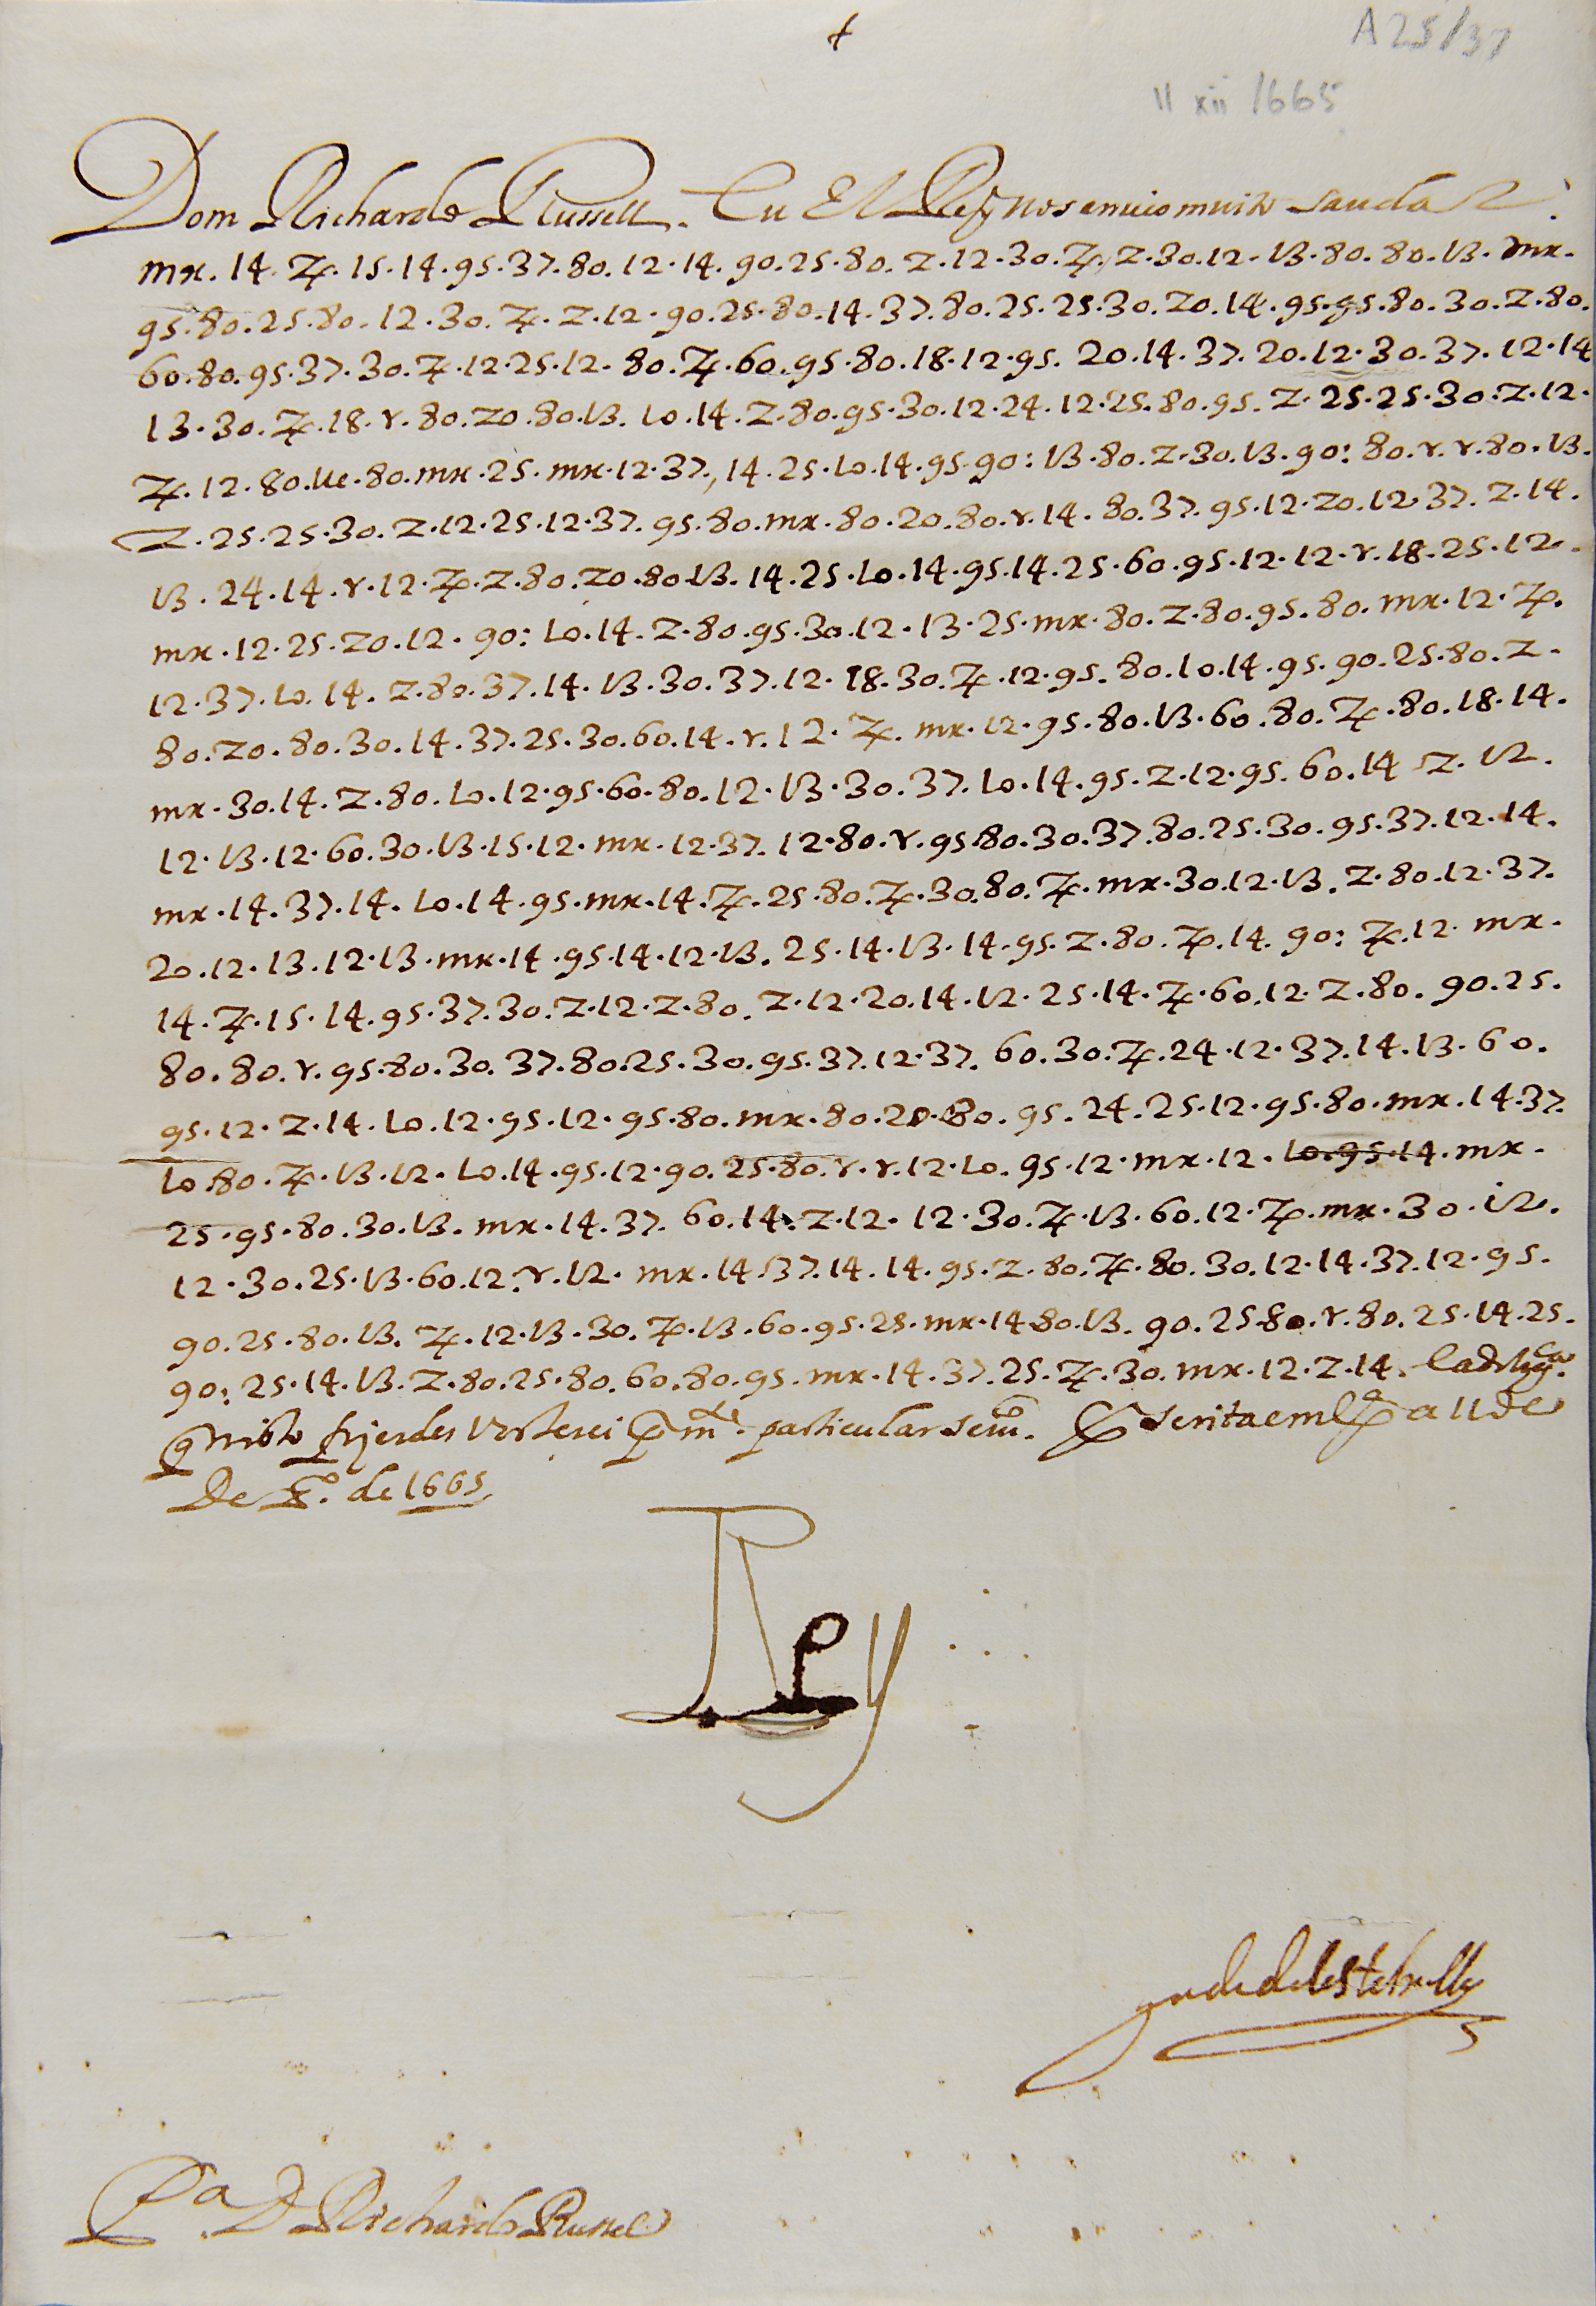 +
A25/37
11 xii 1665
Dom Richardo Russell. Eu El Rey vos envio muito saudar.
mx. 14. 7p. 15. 14. 95. 37. 80. 12. 14. 90. 25. 80. Z. 12. 30. 7p. Z. 30. 12. 13. 80. 80. 13. mx.
95. 80. 25. 80. 12. 30. 7p. Z. 12. 90. 25. 80. 14. 37. 80. 25. 25. 30. 20. 14. 95. 95. 80. 30. Z. 80.
60. 80. 95. 37. 30. 7p. 12. 25. 12. 80. 7p. 60. 95. 80. 18. 12. 95. 20. 14. 37. 20. 12. 30. 37. 12. 14
13. 30. 7p. 18. r. 80. 20. 80. 13. 10. 14. Z. 80. 95. 30. 12. 24. 12. 25. 80. 95. Z. 25. 25. 30. Z. 12.
7p. 12. 80. ue. 80. mx. 25. mx. 12. 37., 14. 25. 10. 14. 95. 90: 13. 80. Z. 30. 13. 90: 80. r. r. 80. 13.
Z. 25. 25. 30. Z. 12. 25. 12. 37. 95. 80. mx. 80. 20. 80. r. 14. 80. 37. 95. 12. 20. 12 37. Z. 14.
13. 24. 14. r. 12. 7p. Z. 80. 20. 80. 13. 14. 25. 10. 14. 95. 14. 25. 60. 95. 12. 12. r. 18. 25. 12.
mx. 12. 25. 20. 12. 90: 10. 14. Z. 80. 95. 30. 12. 13. 25. mx. 80. Z. 80. 95. 80. mx. 12. 7p.
12. 37. 10. 14. Z. 80. 37. 14. 13. 30. 37. 12. 18. 30. 7p. 12. 95. 80. 10. 14. 95. 90. 25. 80. Z.
80. 20. 80. 30. 14. 37. 25. 30. 60. 14. r. 12. 7p. mx. 12. 95. 80. 13. 60. 80. 7p. 80. 18. 14.
mx. 30. 14. Z. 80. 10. 12. 95. 60. 80. 12. 13. 30. 37. 10. 14. 95. Z. 12. 95. 60. 14 Z. 12.
12. 13. 12. 60. 30. 13. 15. 12. mx. 12. 37. 12. 80. r. 95. 80. 30. 37. 80. 25. 30. 95. 37. 12. 14.
mx. 14. 37. 14. 10. 14. 95. mx. 14. 7p. 25. 80. 7p. 30. 80. 7p. mx. 30. 12. 13. Z. 80. 12. 37.
20. 12. 13. 12. 13. mx. 14. 95. 14. 12. 13. 25. 14. 13. 14. 95. Z. 80. 7p. 14. 90: 7p. 12. mx.
14. 7p. 15. 14. 95. 37. 30. Z. 12. Z. 80. Z. 12. 20. 14. 12. 25. 14. 7p. 60. 12. Z. 80. 90. 25.
80. 80. r. 95. 80. 30. 37. 80. 25. 30. 95. 37. 12. 37. 60. 30. 7p. 24. 12. 37. 14. 13. 60.
95. 12. Z. 14. 10. 12. 95. 12. 95. 80. mx. 80. 20. 80. 95. 24. 25. 12. 95. 80. mx. 14. 37.
10. 80. 7p. 13. 12. 10. 14. 95. 12. 90. 25. 80. r. r. 12. 10. 95. 12. mx. 12. 10. 95. 14. mx.
25. 95. 80. 30. 13. mx. 14. 37. 60. 14. Z. 12. 12. 30. 7p. 13. 60. 12. 7p. mx. 30. 12.
12. 30. 25. 13. 60. 12. r. 12. mx. 14. 37. 14. 14. 95. Z. 80. 7p. 80. 30. 12. 14. 37. 12. 95.
90. 25. 80. 13. 7p. 12. 13. 30. 7p. 13. 60. 95. 25. mx. 14 80. 13. 90. 25. 80. r. 80. 25. 14. 25.
90: 25. 14. 13. Z. 80. 25. 80. 60. 80. 95. mx. 14. 37. 25. 7p. 30. mx. 12. Z. 14.
q nisto fizerdes vos terei particular servo. Escrita em Lxa a 11 de
De Xo. de 1665
Rey
Pa. D Richardo Russel